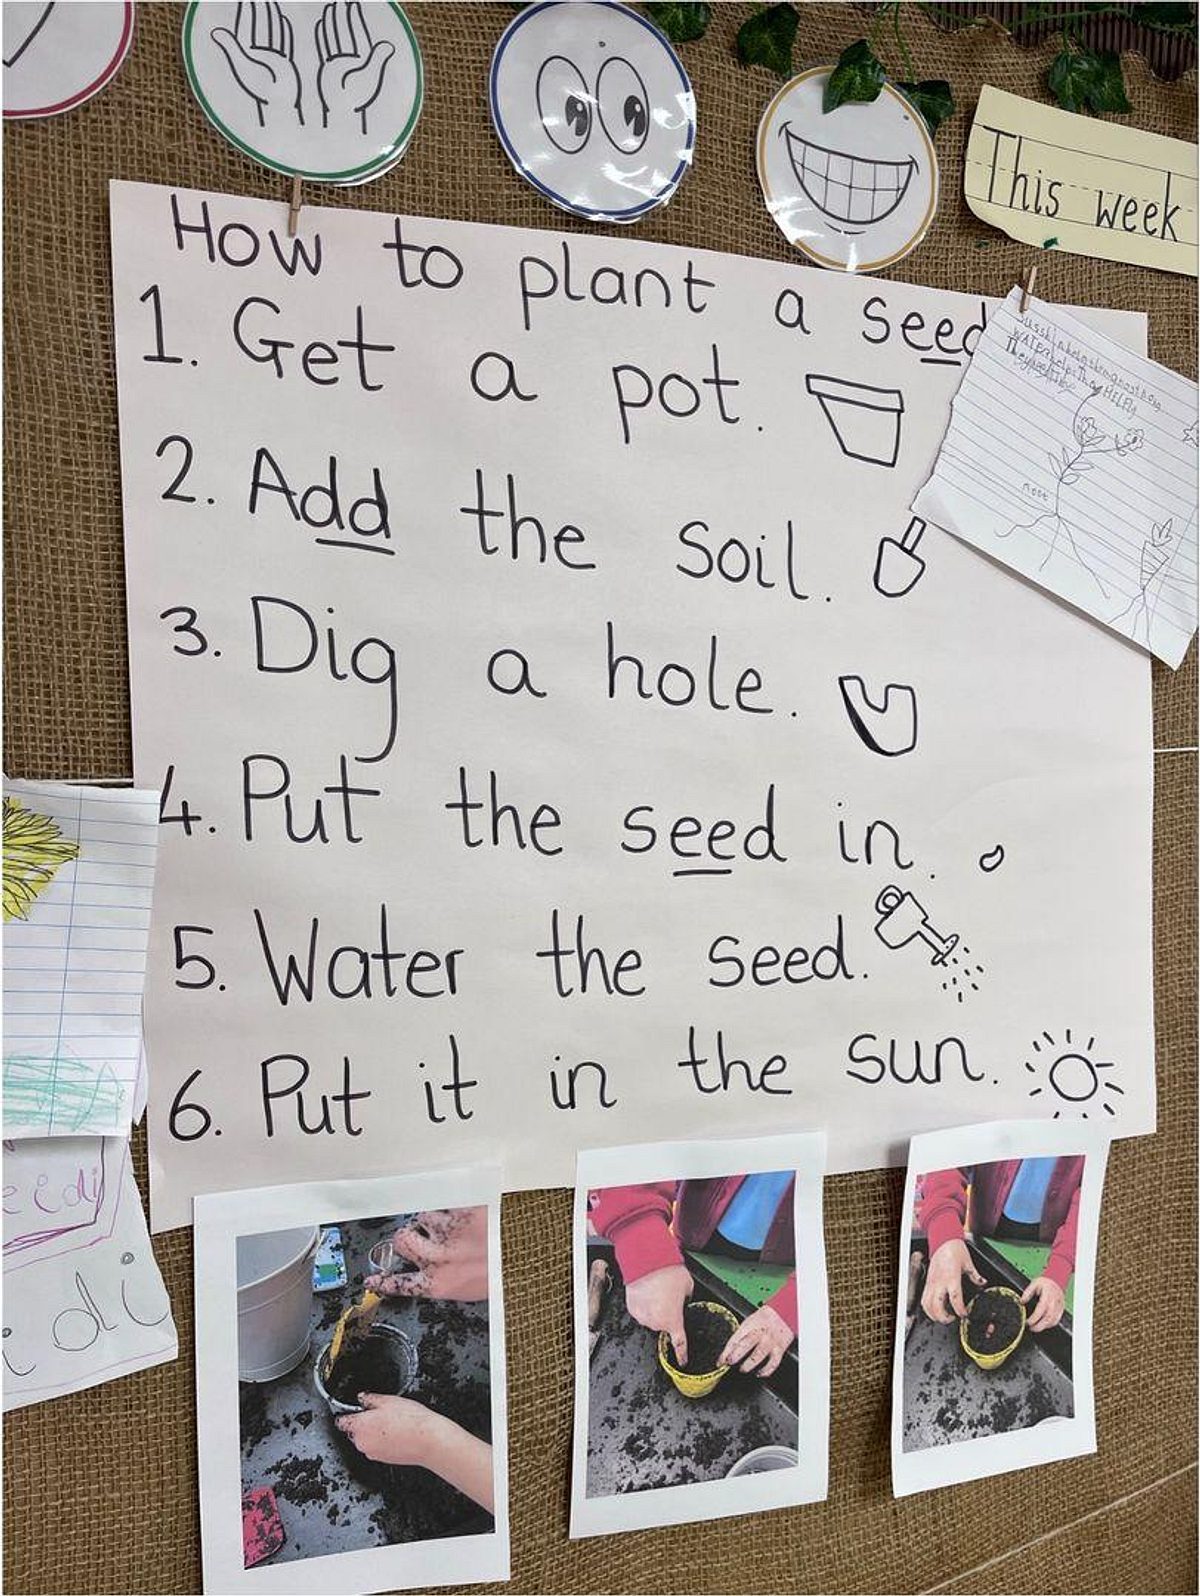 This week
How to plant a seed
1. Get a pot.
2. Add the soil.
3. Dig a hole.
4. Put the seed in.
5. Water the seed.
6. Put it in the sun.
root